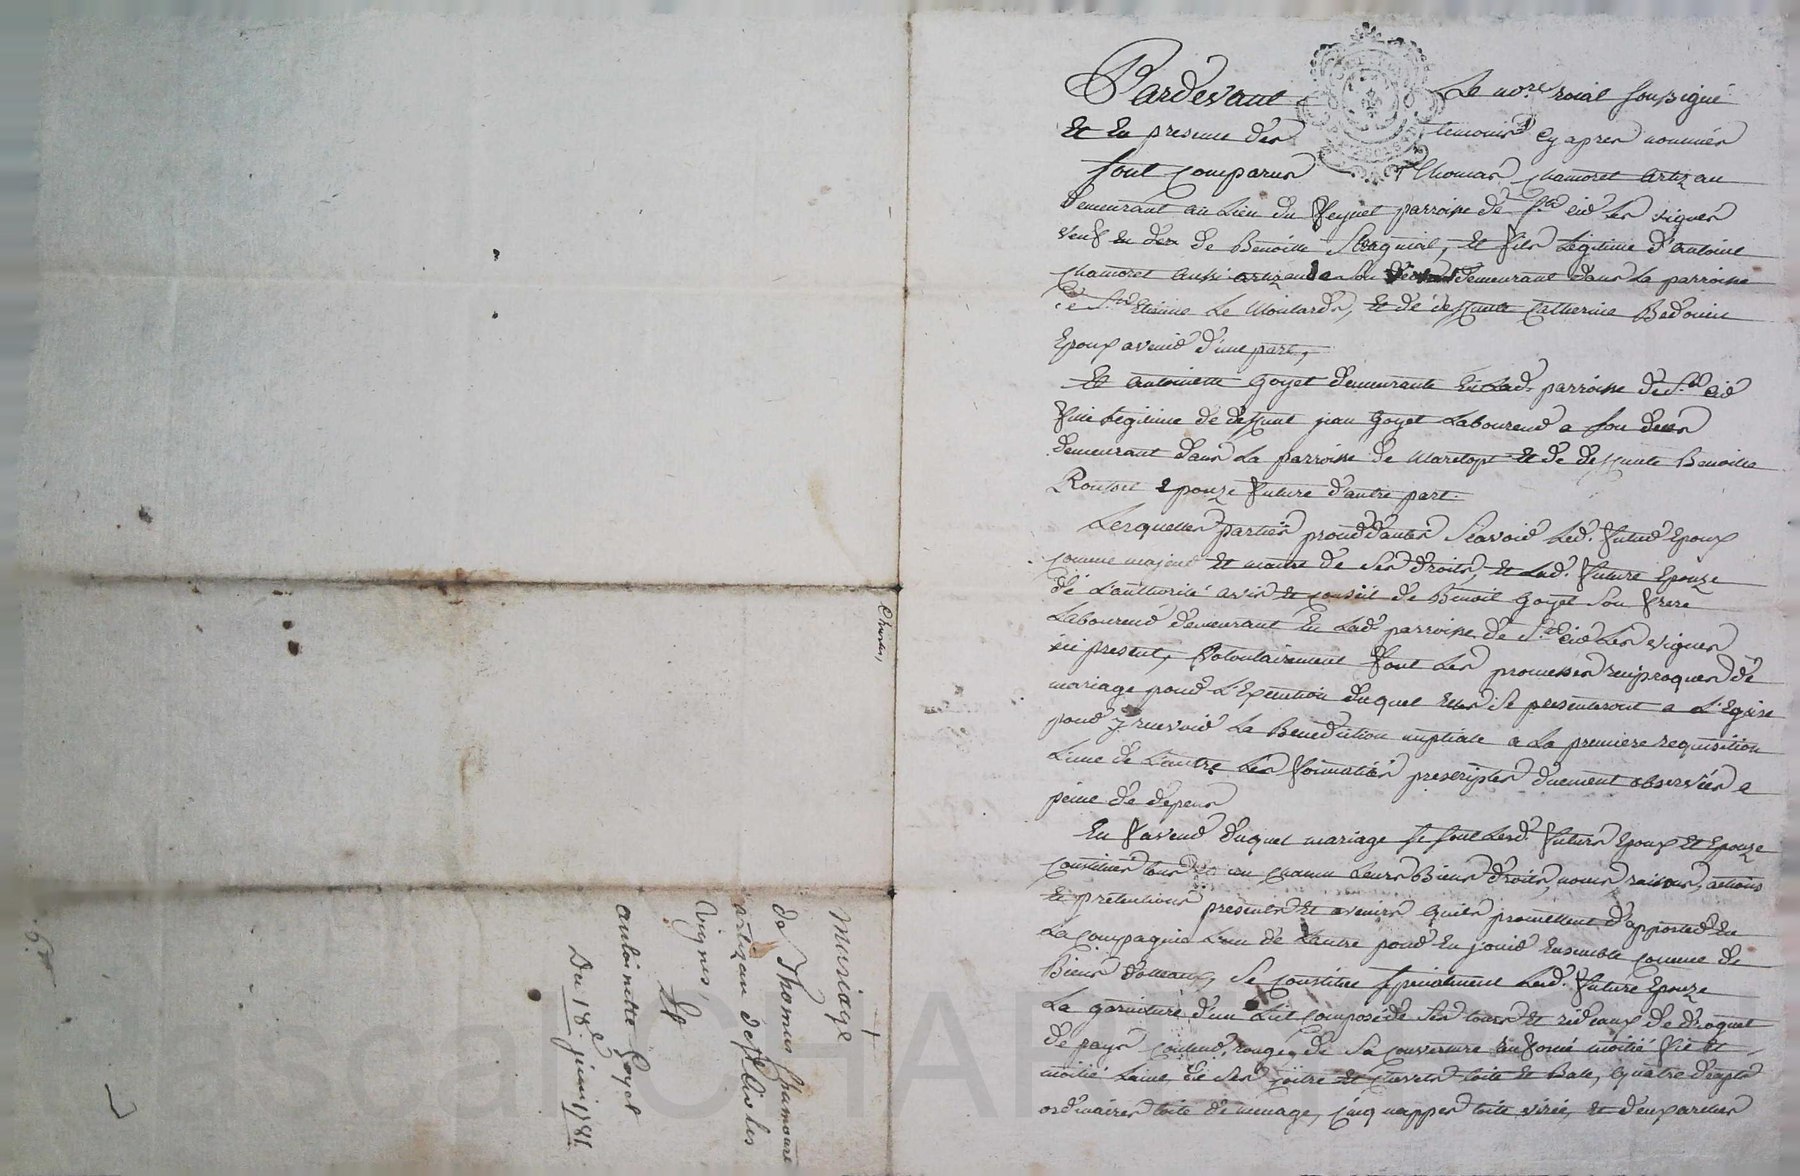 Pardevant Le no.re roial soussigné
Et En presence des temoins cy apres nommés
sont comparus Thomas chamoret artizan
demeurant au Lieu du feynet parroisse de S.te Cid les vignes
veuf de Benoitte et fils Légitime d'antoine
chamoret aussi artizan demeurant dans La parroisse
de S.t Etienne Le Moulards, et de deffunte Catherine Bedouin
Epoux avenir d'une part,
Et antoinette Goyet demeurante En Lad. parroisse de S.te Cid
fille Légitime de deffunt jean Goyet Laboureur a son deces
demeurant dans La parroisse de Maretopt et de deffunte Benoitte
Rousset Epouze future d'autre part.
Lesquelles parties procédantes Scavoir Led. futur Epoux
comme majeur et maitre de ses droits, et Lad. future Epouze
de L'authorité avis et conseil de Benoit Goyet Son frere
Laboureur demeurant En Lad. parroisse de S.te Cid Les vignes
ici present, volontairement font les promesses reciproques de
mariage pour L'Execution duquel Elles se presenteront a L'Eglise
pour y recevoir La Benediction nuptiale a La premiere requisition
L'une de L'autre Les formalités prescriptes duement observées a
peine de depens
En faveur duquel mariage se sont Lesd. futurs Epoux et Epouze
constitués tous et un chacun Leurs Biens droits, noms raisons, actions
et pretentions presents et avenirs quils promettent d'apporter En
La compagnie L'un de L'autre pour En jouir Ensemble comme de
Biens dotteaux, se constitue specialement Lad. future Epouze
La garniture d'un Lit composé de Ses tours et rideaux de droguet
de pays couleur rouge, de sa couverture moitié fil et
moitié Laine, de Son coitre et Cuvert toile de Bale, quatre draps
ordinaires toile de menage, cinq nappes toile
Chartes,
Mariage
de Thomas Chamoret
artizan de S.te Cid les
vignes,
Et
antoinette Goyet
Du 18.e juin 1781